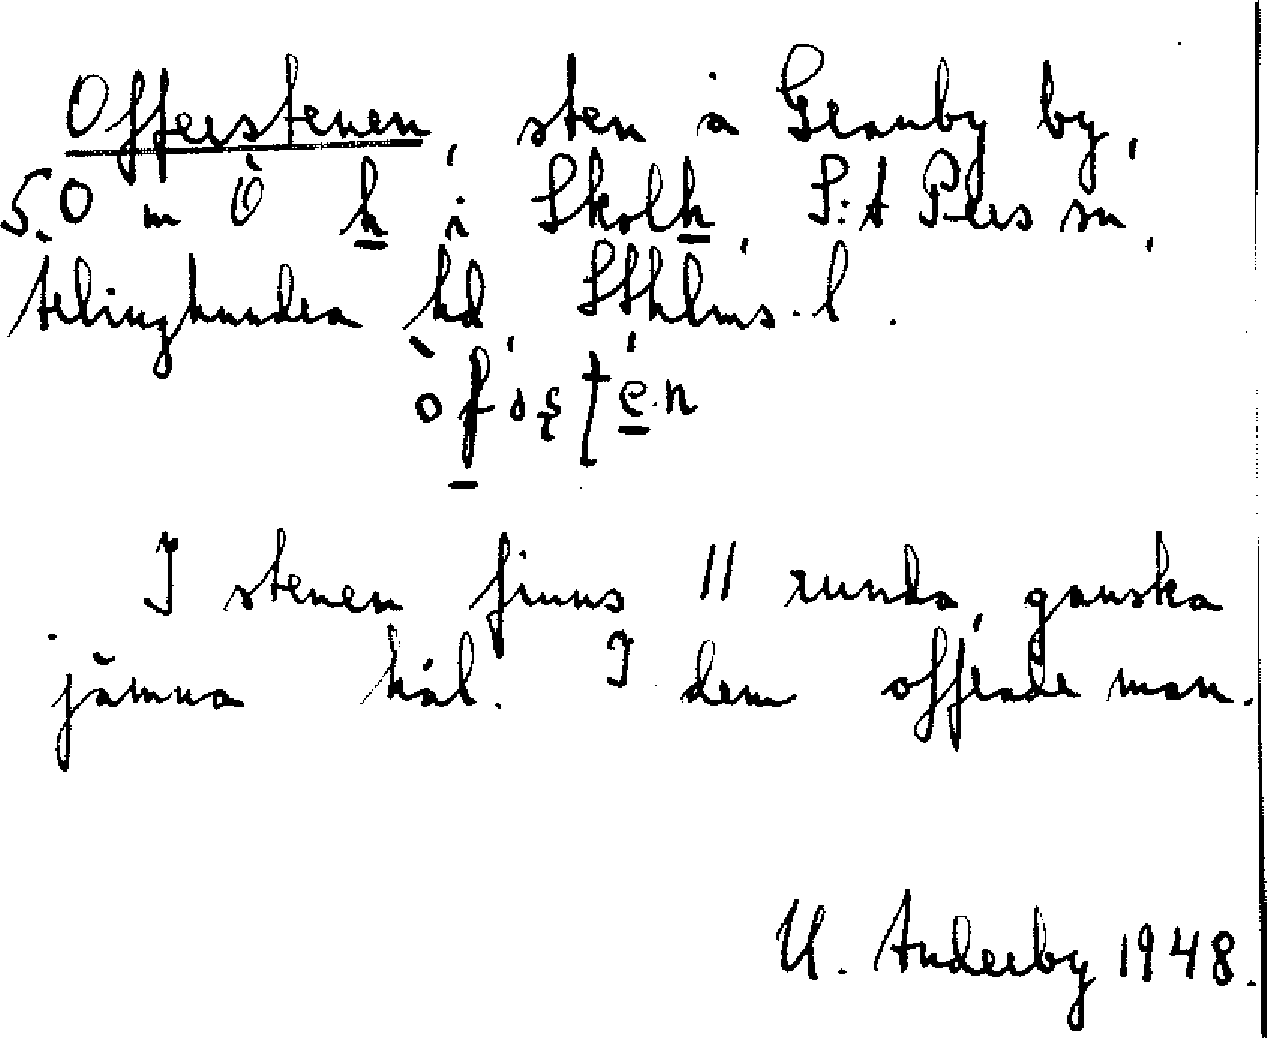 Offerstenen, sten å Granby by,
50 m Ö h i Skolh, S:t Pers sn,
Ärlinghundra hd, Sthlms. l.
I stenen finns 11 runda, ganska
jämna hål. I dem offrade man.
U. Anderby 1948.